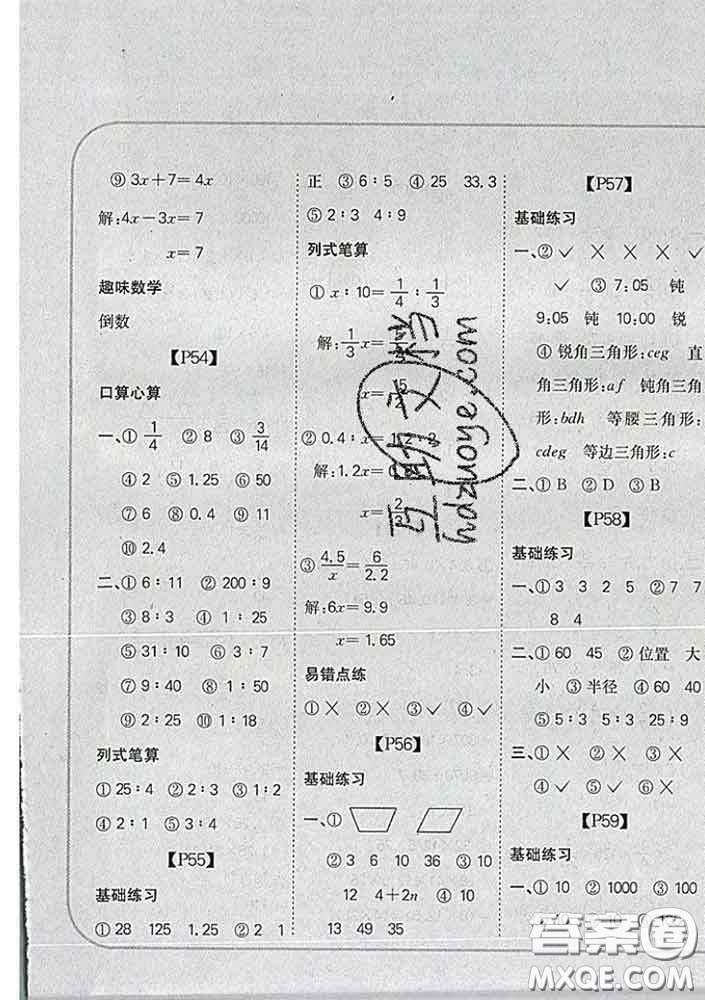 ⑨ 3x+7=4x
解:4x-3x=7
x=7
趣味数学
倒数
【P54】
口算心算
一、① 1/4 ② 8 ③ 3/14
④ 2 ⑤ 1.25 ⑥ 250
⑦ 6 ⑧ 0.4 ⑨ 11
⑩ 2.4
二、① 6∶11 ② 200∶9
③ 8∶3 ④ 1∶25
⑤ 31∶10 ⑥ 3∶50
⑦ 9∶40 ⑧ 5∶2
⑨ 2∶25 ⑩ 1∶18
列式笔算
① 25∶4 ② 2∶3 ③ 1∶2
④ 2∶1 ⑤ 3∶2
【P55】
基础练习
① 28 125 1.25 ② 2 1
正 ③ 6∶5 ④ 25 33.3
⑤ 2∶3 4∶9
列式笔算
① x∶10=1/4∶1/3
解:1/3x=
x=15/2
② 0.4∶x=
解:1.2x=
x=
③ 4.5/x=6/2.2
解:6x=9.9
x=1.65
易错点练
①✕ ②✕ ③✓ ④✓
【P56】
基础练习
一、①
② 3 6 10 36 ③ 10
12 4+2n ④ 10
13 49 35
【P57】
基础练习
一、②✓ ✕ ✕ ✕
✓ ③ 7:05 钝
9:05 钝 10:00 锐
④ 锐角三角形:ceg 直
角三角形:af 钝角三角
形:bdh 等腰三角形:
cdeg 等边三角形:c
二、① B ② D ③ B
【P58】
基础练习
一、① 3 3 2 5 ② 7 7
8 4
二、① 60 45 ② 位置 大
小 ③ 半径 ④ 60
⑤ 5∶3 5∶3 25∶9
三、①✓ ②✕ ③✕
④✓ ⑤✓ ⑥✕
【P59】
基础练习
一、① 10 ② 1000 ③ 10
互助文档
hdzuoye.com
答案圈
MXQE.COM